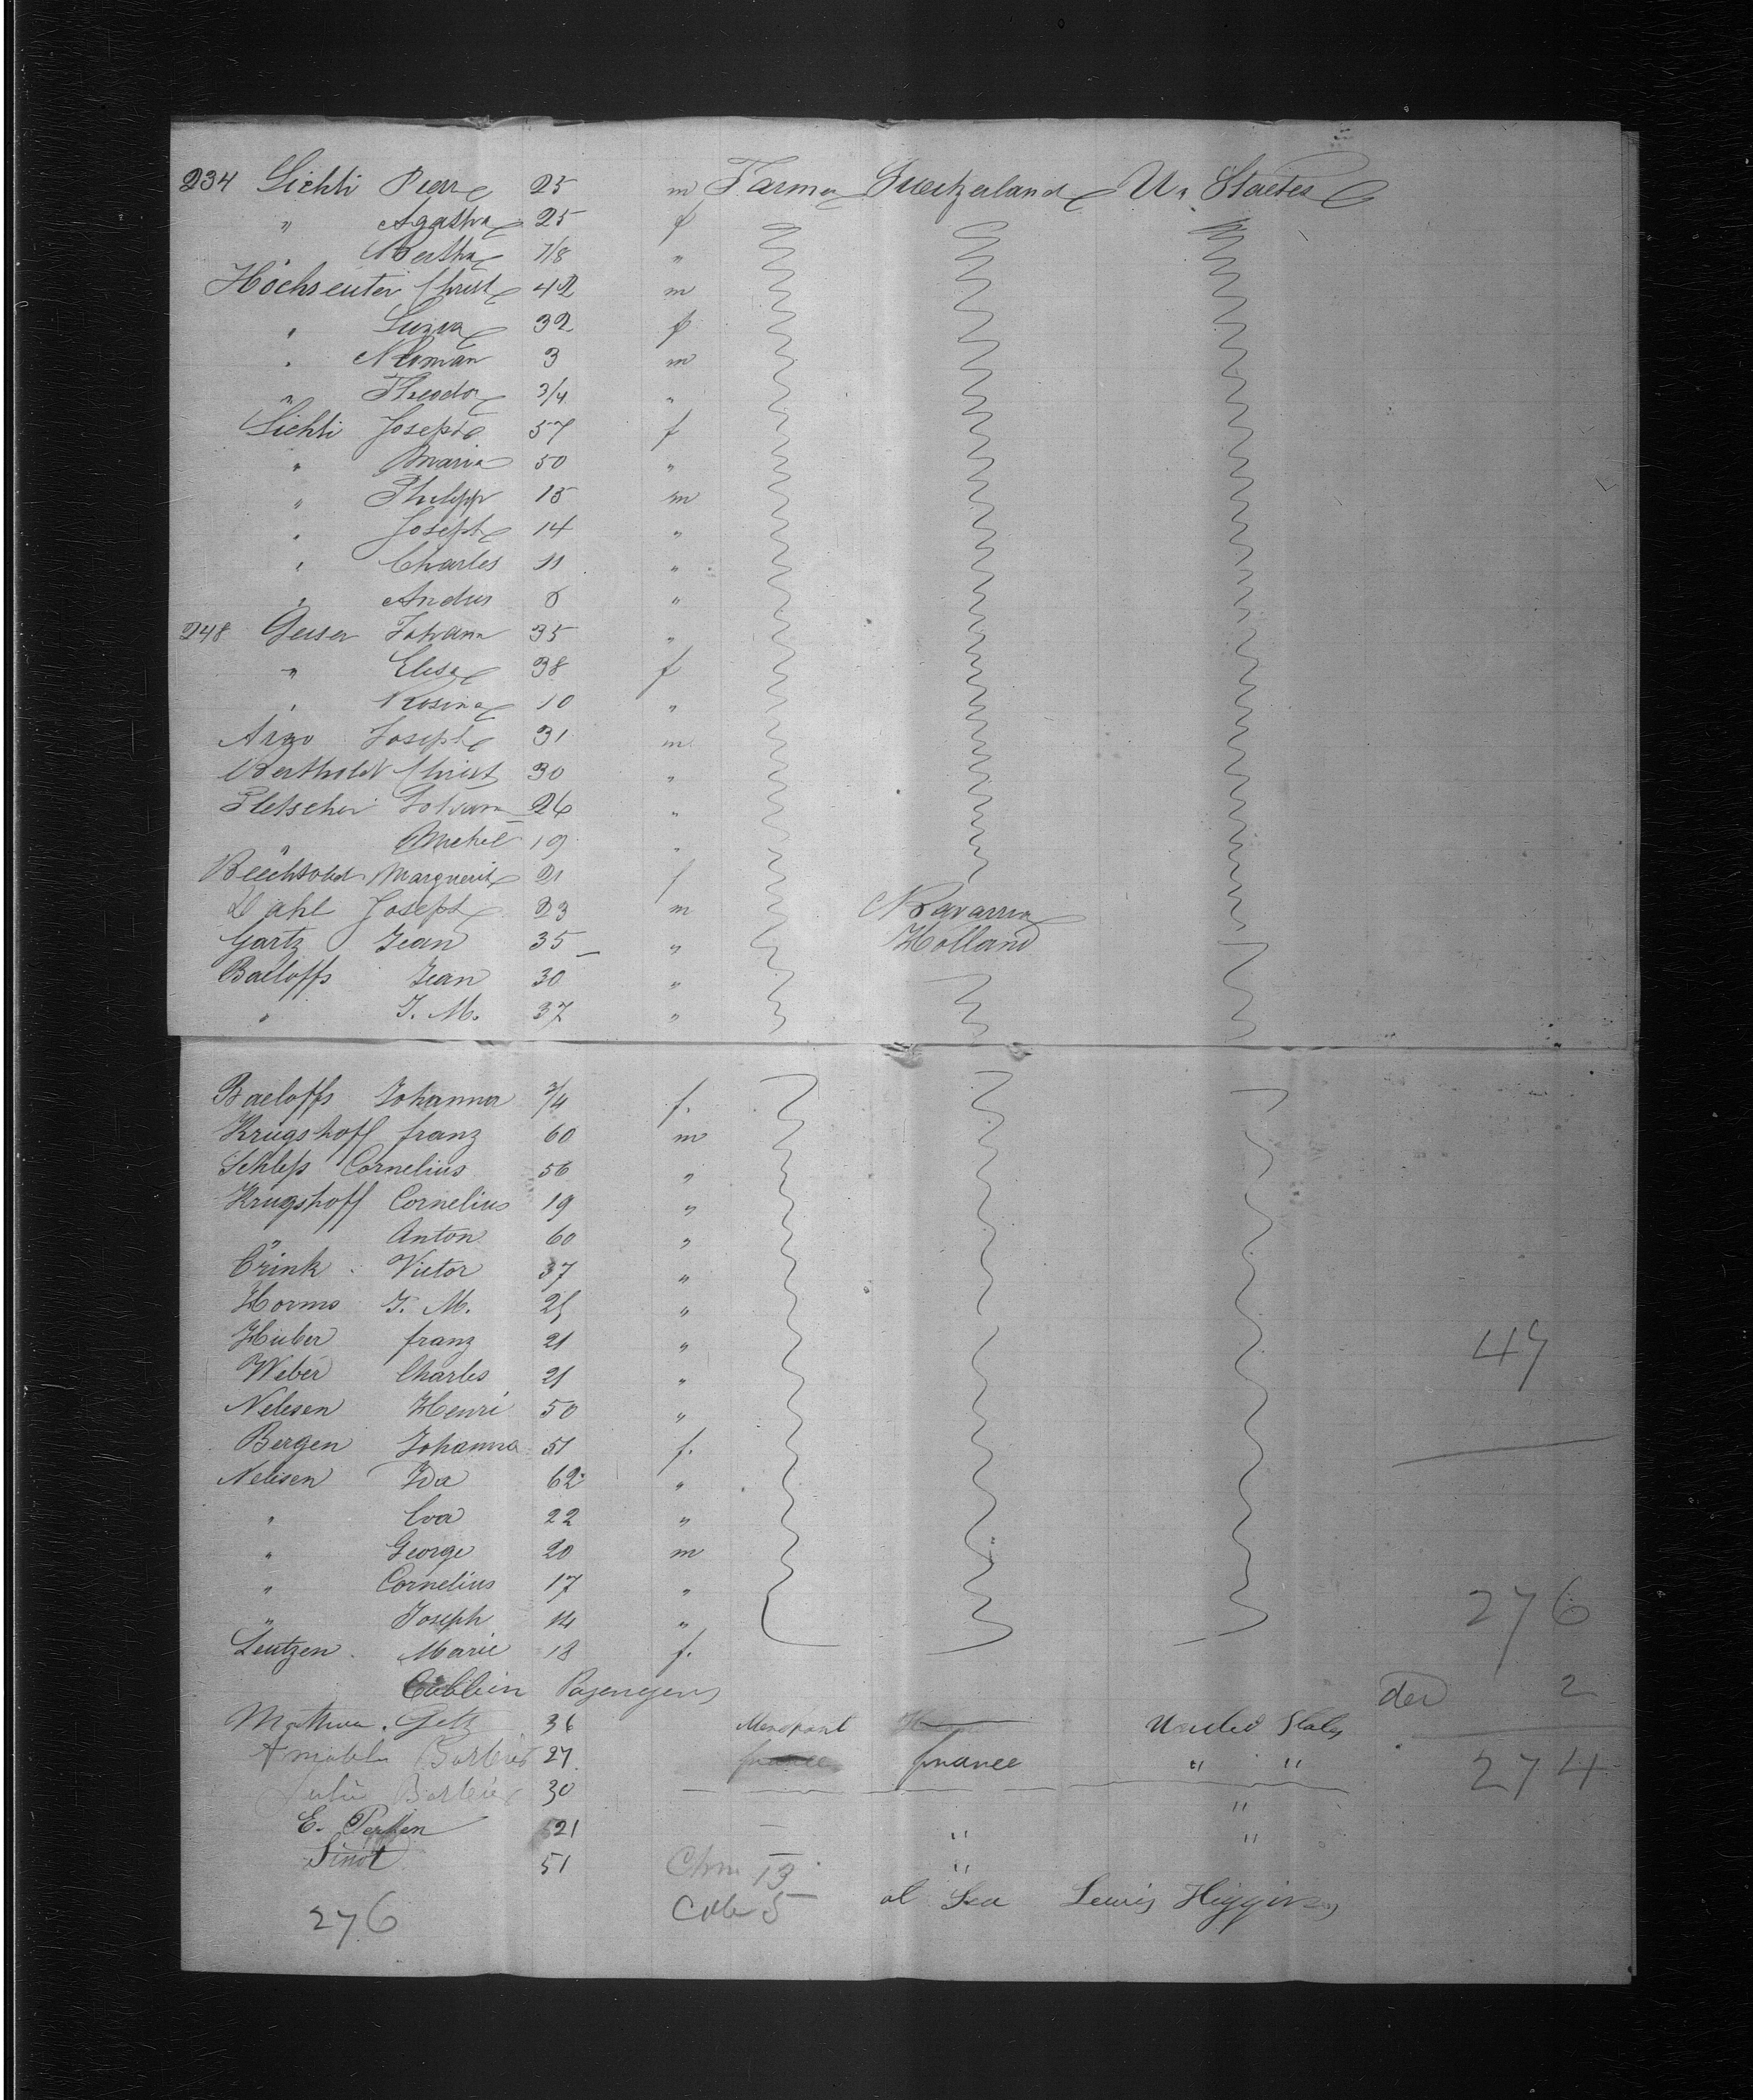 234 Lichti Pierre 25 m Farmer Switzerland U. States
" Agatha 25 f
" Bertha 7/8 "
Hochreuter Christ 42 m
" Luzia 32 f
" Roman 3 m
" Theodor 3/4 "
Lichti Joseph 57 f
" Maria 50 "
" Philipp 15 m
" Joseph 14 "
" Charles 11 "
" Andres 8 "
248 Geiser Johann 35 "
" Elisa 38 f
" Rosina 10 "
Argo Joseph 31 m
Berthold Christ 30 "
Pletscher Johann 26 "
" Michel 19 "
Bechtold Marguerit 21 f
Dahl Joseph 23 m Bavaria
Gartz Jean 35 " Holland
Baeloffs Jean 30 "
" J. M. 37 "
Baeloffs Johanna 3/4 f.
Krugshoff franz 60 m
Cornelius 56 "
Krugshoff Cornelius 19 "
" Anton 60 "
Crink Victor 37 "
Horms J. M. 25 "
Huber franz 21 "
Weber Charles 21 "
Nelesen Henri 50 "
Bergen Johanna 51 f.
Nelesen Ida 62 "
" Eva 22 "
" George 20 m
" Cornelius 17 "
" Joseph 14 "
Leutzen Marie 18 f.
47
276
2
274
Passengers
Getz 36 United States
Barbier 27 france " "
Barbier 30 "
E. 21 " "
Sinot 51 "
13
5 at Sea Lewis Higgins
276